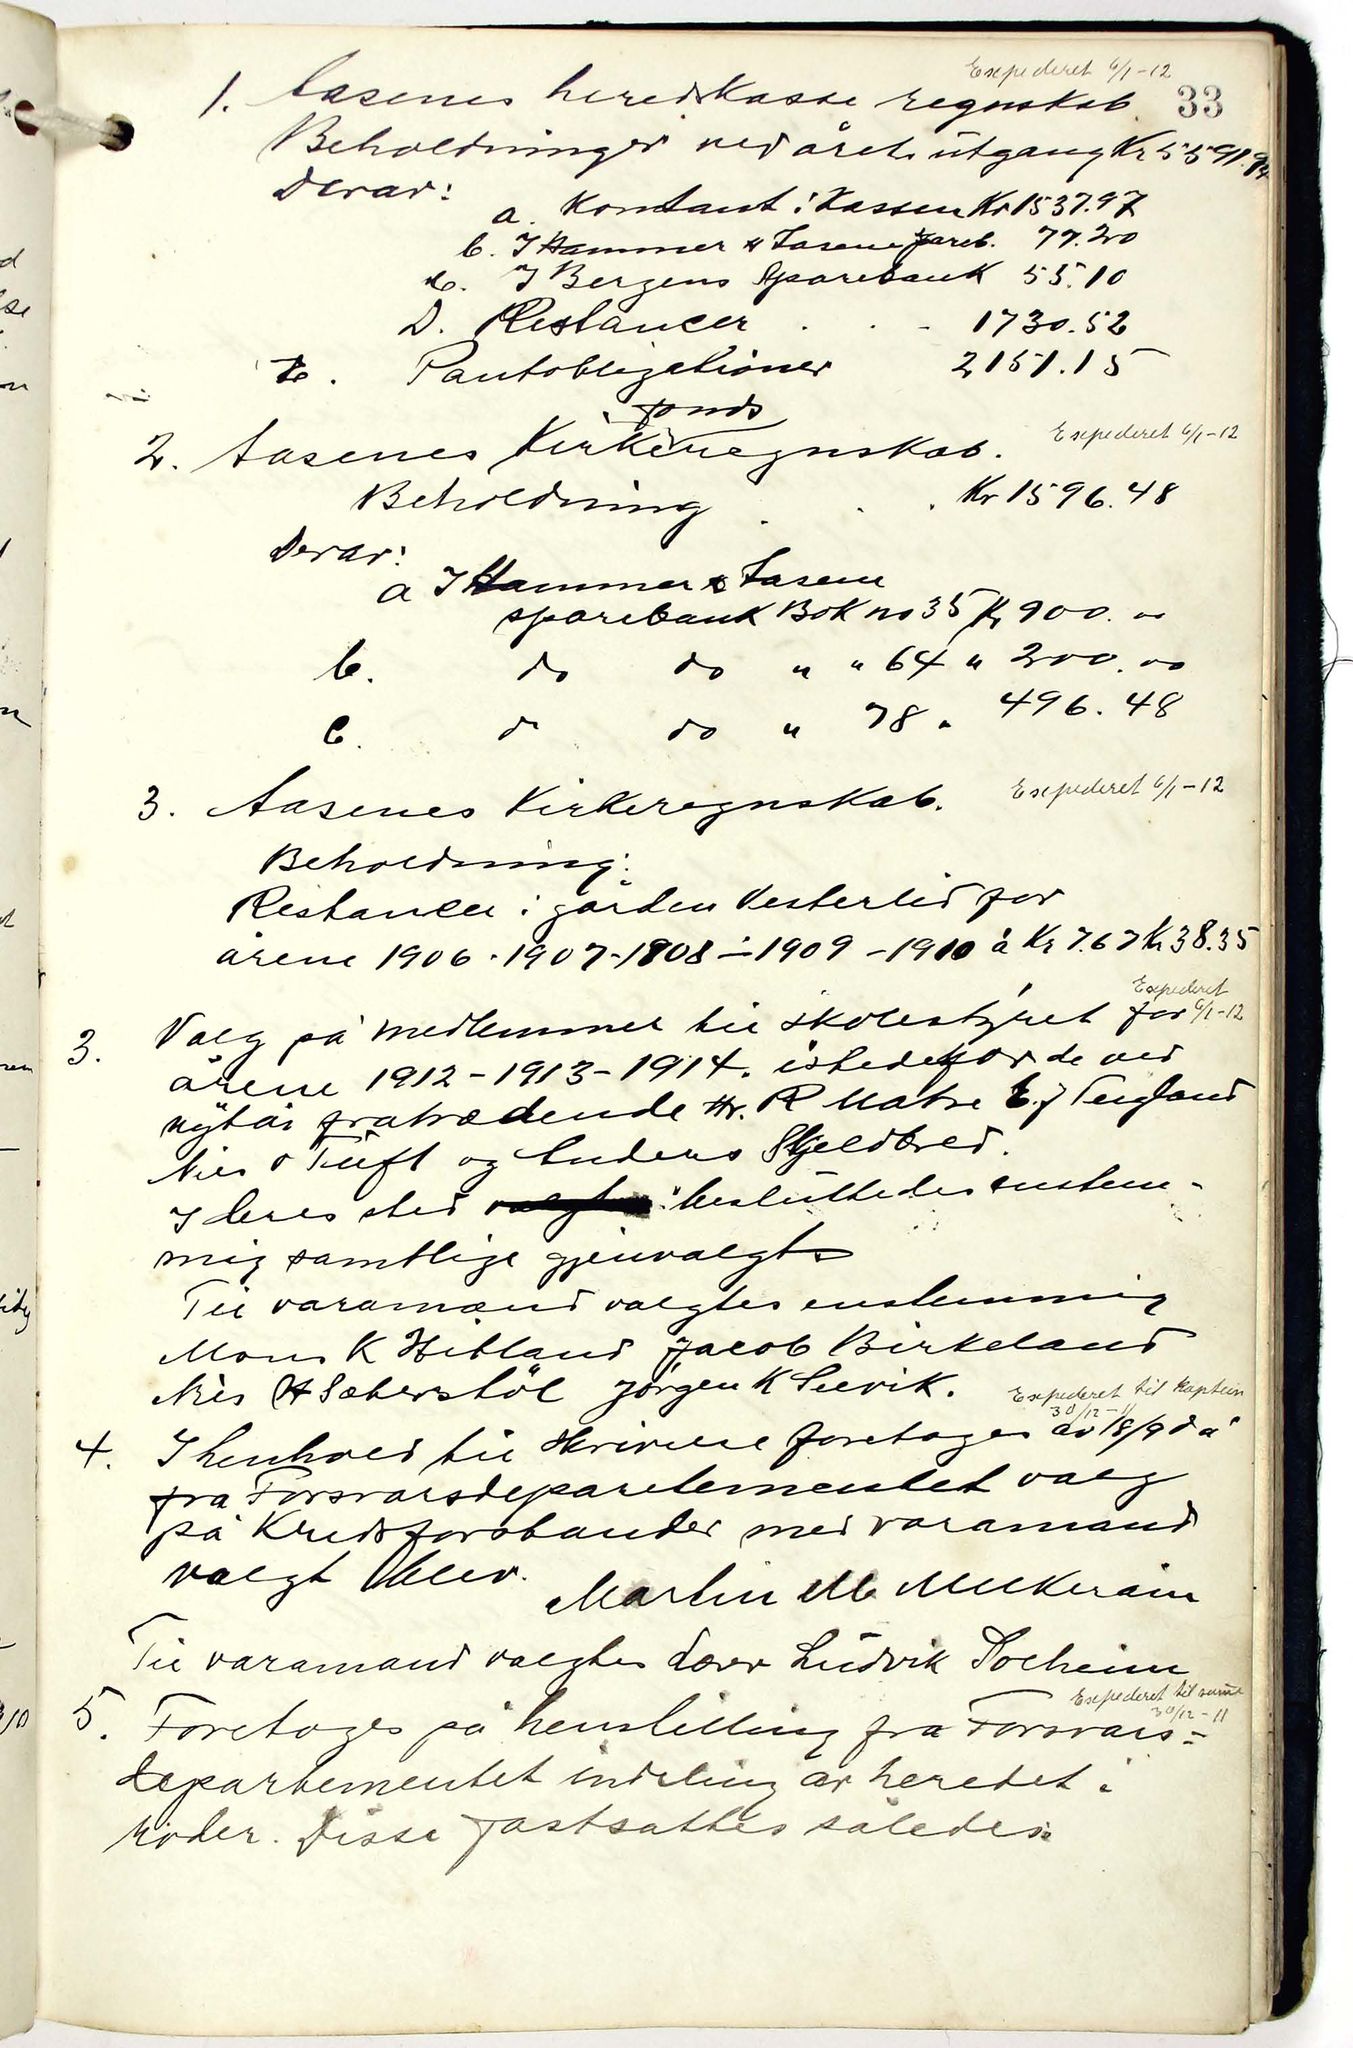 Expederet 6/1-12
33
1. Aasenes heredskasse regnskab
Beholdninger ved årets utgang Kr 5591.94
Derav:
a. Kontant i Kassen Kr 1537.97
b. I Hammer & Aasene spareb. 77.20
c. I Bergens Sparebank 55.10
D. Restancer . . - 1730.52
E. Pantobligationer 2151.15
fonds
2. Aasenes Kirkeregnskab. Expederet 6/1-12
Beholdning . . . Kr 1596.48
Derav:
a I Hammer & Aasene
sparebank Bok no 35 Kr 900. 00
b. do do " " 64 " 200. 00
c. do do " 78 " 496. 48
3. Aasenes Kirkeregnskab. Expederet 6/1-12
Beholdning:
Restancer i gården Vesterlid for
årene 1906-1907-1908-1909-1910 à Kr 7.67 Kr 38.35
Expederet 6/1-12
3. Valg på medlemmer til skolestyret for
årene 1912-1913-1914. istedetfor de ved
nytår fratrædende Hr. R Matre E. J Teigland
Nils O Tuft og Anders Skjeldbred.
I deres sted besluttedes enstem-
mig samtlige gjenvalgt
Til varamænd valgtes enstemmig
Mons K Hibland Jacob Birkeland
Nils H Sæberstöl Jörgen K Leivik.
Expederet til Kaptein
30/12-11
4. I henhold til skrivelse foretages av 18/9 d å
fra Forsvarsdepartementet valg
på Kredsforstander med varamand
valgt blev.
Martin M Melkeraaen
Til varamand valgtes Ludvik Solheim
Expederet til samme
30/12-11
5. Foretages på henstilling fra Forsvars=
departementet indeling av heredet i
roder. Disse fastsattes således: